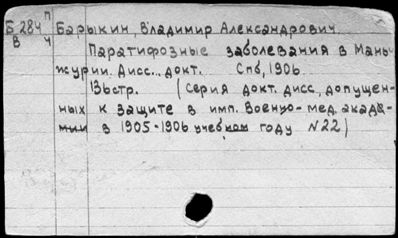 Б 284 П Барыкин, Владимир Александрович.
В Ч Паратифозные заболевания в Мань-
чжурии. Дисс... докт. Спб, 1906.
136стр. (Серия докт. дисс, допущен-
ных к защите в имп. Военно-мед. акаде-
мии в 1905-1906 учебном году N22)